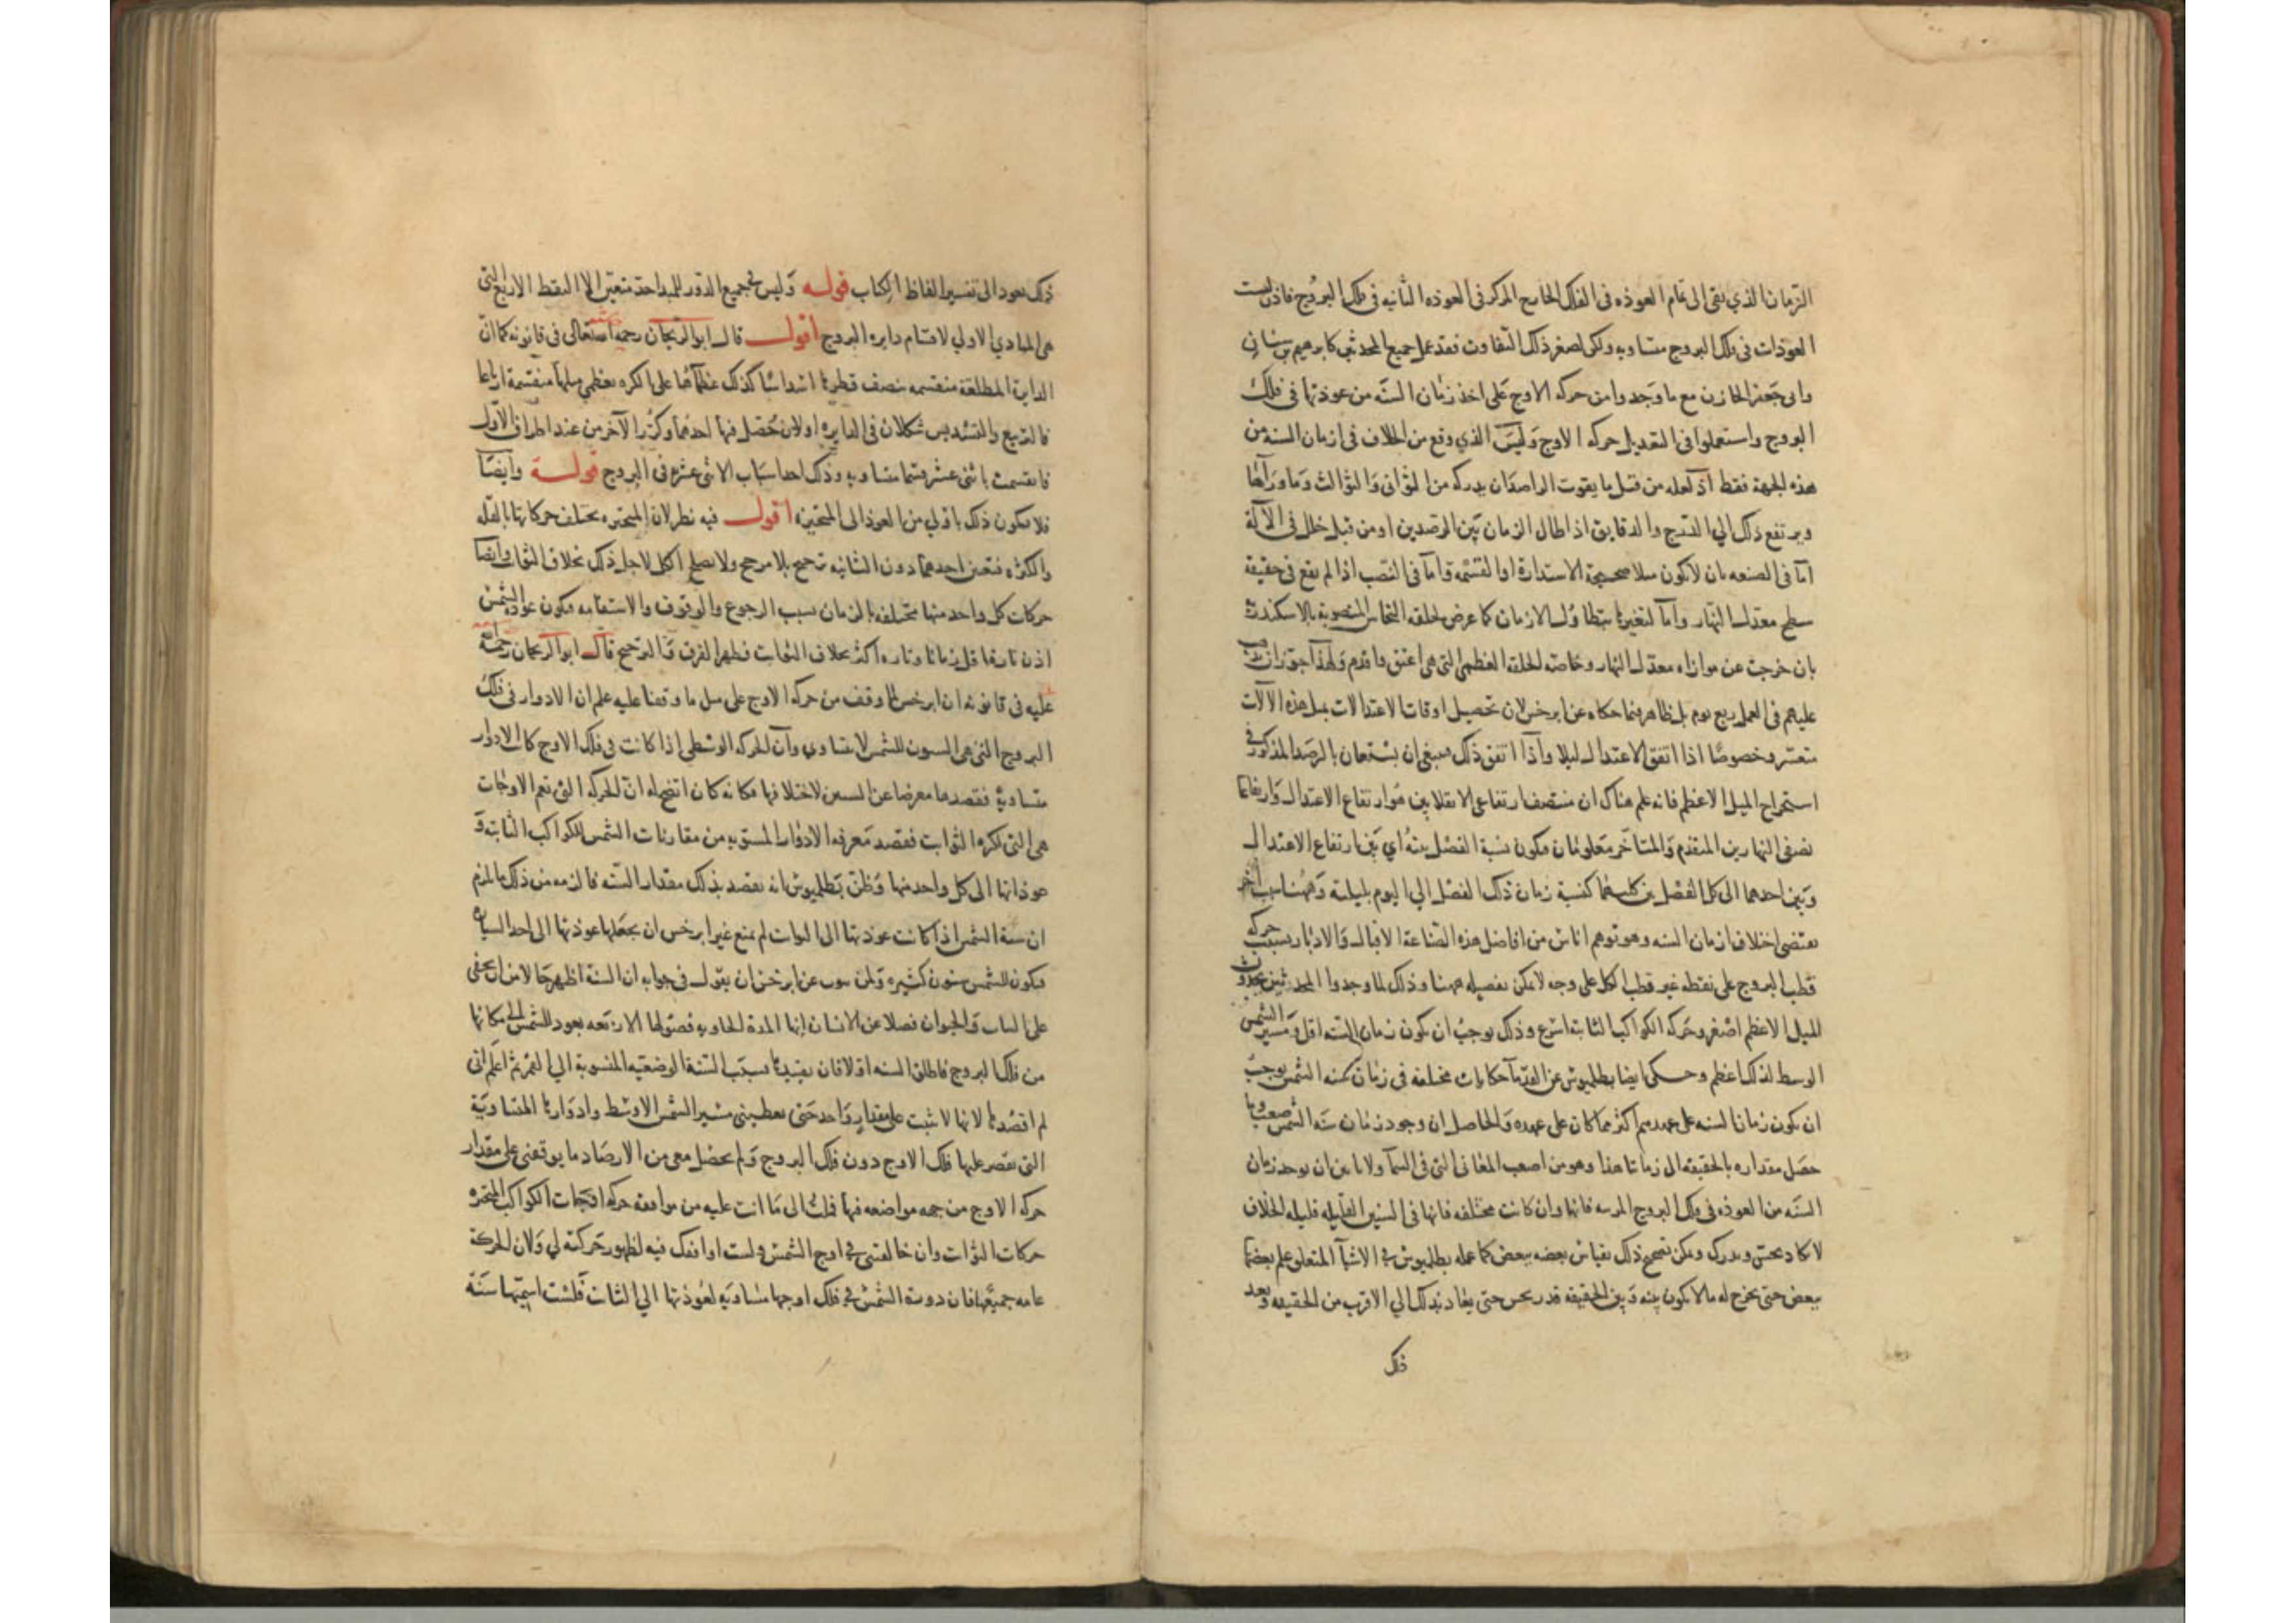 الزمان الذي بقى الى تمام العوذه فى الفلك الخارج المركز فى العوذه الثانيه فى فلك البروج فاذن ليست
العوذات فى فلك البروج متساويه ولكن لصغر ذلك التفاوت فقد عمل جميع المحدثين كابرهيم بن سنان
وابى جعفر الخازن مع ما وجدوا من حركه الاوج على اخذ زمان السنه من عوذتها فى فلك
البروج واستعملوا فى التعديل حركه الاوج وليس الذي وقع من الخلاف فى ازمان السنه من
هذه الجهة فقط اذ لعله من قبل ما يفوت الراصدان يدركه من الثوانى والثوالث وما وراها
ويرتفع ذلك الي الدرج والدقايق اذا طال الزمان بين الرصدين او من قبل خلل فى الآلة
اما فى الصنعه بان لا تكون مثلا صحيحة الاستدارة او القسمه واما فى النصب اذا لم يقع فى حقيقة
سطح معدل النهار واما لتغيرها بتطاول الازمان كما عرض لحلقه النحاس المنصوبه بالاسكندرية
بان خرجت عن موازاه معدل النهار وخاصه الحلقه العظمى التى هى اعتق واقدم ولهذا جوز ان
عليهم فى العمل ربع يوم بل ظاهر فيما حكاه عن ابرخس لان تحصيل اوقات الاعتدالات بمثل هذه الالات
متعسر وخصوصا اذا اتفق الاعتدال ليلا واذا اتفق ذلك فينبغى ان يستعان بالرصد المذكور فى
استخراج الميل الاعظم فانه علم هناك ان منتصف ارتفاعى الانقلابين هو ارتفاع الاعتدال وارتفاعا
نصفى النهارين المتقدم والمتاخر معلومان فيكون نسبة الفضل بينه اي بين ارتفاع الاعتدال
وبين احدهما الى كل الفضل بين كليهما كنسبة زمان ذلك الفضل الي اليوم بليلته وههنا سبب آخر
يقتضى اختلاف ازمان السنه وهو توهم اناس من افاضل هذه الصناعة الاقبال والادبار بسبب حركه
قطب البروج على نقطه غير قطب الكل على وجه لا يمكن تفصيله ههنا وذلك لما وجدوا المحدثين يجدون
الميل الاعظم اصغر وحركه الكواكب الثابته اسرع وذلك يوجب ان يكون زمان السنه اقل ومسير الشمس
الوسط لذلك اعظم وحكى ايضا بطلميوس عن القدمآ حكايات مختلفه فى زمان سنه الشمس يوجب
ان يكون زمان السنه على عهدهم اكثر مما كان على عهده والحاصل ان وجود زمان سنه الشمس صعب وما
حصل مقداره بالحقيقه الى زماننا هذا وهو من اصعب المعانى التى فى السمآ ولا باس ان يوجد زمان
السنه من العوذه فى فلك البروج المرسه فانها وان كانت مختلفه فانها فى السنين القليله قليله الخلاف
لا تكاد تحس وتدرك ويمكن تصحيح ذلك بقياس بعضه ببعض كما عمله بطلميوس فى الاشيآ المتعلق علم بعضها
ببعض حتى يخرج له ما لا يكون بينه وبين الحقيقه قدر يحس حتى يعاد بذلك الي الاقرب من الحقيقه وبعد
ذلك
ذلك نعود الى تفسير الفاظ الكتاب قوله وليس فى جميع الدور للبدا حد متعين الا النقط الاربع التى
هى المبادي الاولي لاقسام دايره البروج اقول قال ابو الريحان رحمه الله تعالى فى قانونه كما ان
الدايرة المطلقة منقسمه بنصف قطرها اسداسا كذلك عظماها على الكره بعظمى مثلها منقسمة ارباعا
فالتربيع والتسديس شكلان فى الدايره اولان حصل فيها احدهما وكرر الآخر من عند اطراف الاول
فانقسمت باثنى عشر قسما متساويه وذلك احد اسباب الاثنى عشره فى البروج قوله وايضا
فلا يكون ذلك باولي من العوذ الى المتحيزه اقول فيه نظر لان المتحيره يختلف حركاتها بالقله
والكثره فتعين احدهما دون الثانيه ترجيح بلا مرجح ولا يصلح الكل لاجل ذلك بخلاف الثوابت وايضا
حركات كل واحد منها مختلفه بالزمان بسبب الرجوع والوقوف والاستقامه فيكون عوده الشمس
اذن تارة اقل زمانا وتاره اكثر بخلاف الثوابت فظهر الفرق والترجيح قال ابو الريحان رحمة الله
عليه فى قانونه ان ابرخس لما وقف من حركه الاوج على مثل ما وقفنا عليه علم ان الادوار فى فلك
البروج التى هى السنون للشمس لا يتساوي وان الحركه الوسطى اذا كانت فى فلك الاوج كانت الادوار
متساوية فقصدها معرضا عن السنين لاختلافها وكانه كان اتضح له ان الحركه التى تعم الاوجات
هى التى لكره الثوابت فقصد معرفه الادوار المستويه من مقارنات الشمس للكواكب الثابته و
عوذاتها الى كل واحد منها وظن بطلميوس انه يقصد بذلك مقدار السنه فالزمه من ذلك ما لزم
ان سنة الشمس اذا كانت عوذتها الى الثوابت لم يمنع غير ابرخس ان يجعلها عوذتها الى احد السياره
فيكون للشمس سنون كثيره ولمن ينوب عن ابرخس ان يقول فى جوابه ان السنة اظهر حالا من ان يخفى
على النبات والحيوان فضلا عن الانسان انها المدة الحاويه فصولها الاربعه بعود الشمس الى مكانها
من فلك البروج فاطلق السنه اذ لا فان يقيدها بسبب السنة الوضعيه المنسوبة الي القمر ثم اعلم انى
لم اقصدها لانها لا تثبت على مقدار واحد حتى يعطينى مسير الشمس الاوسط وادوارها المتساوية
التى يقصر عليها فلك الاوج دون فلك البروج ولم يحصل معى من الارصاد ما يوقفنى على مقدار
حركه الاوج من جهه مواضعه فيها فملت الى ما انت عليه من موافقه حركه اوجات الكواكب المتحيره
حركات الثوابت وان خالفتنى فى اوج الشمس ولست اوافقك فيه لظهور حركته لي ولان الحركة
عامه جميعها فان دورة الشمس فى فلك اوجها مساويه لعوذتها الي الثابت فلست اسميها سنة